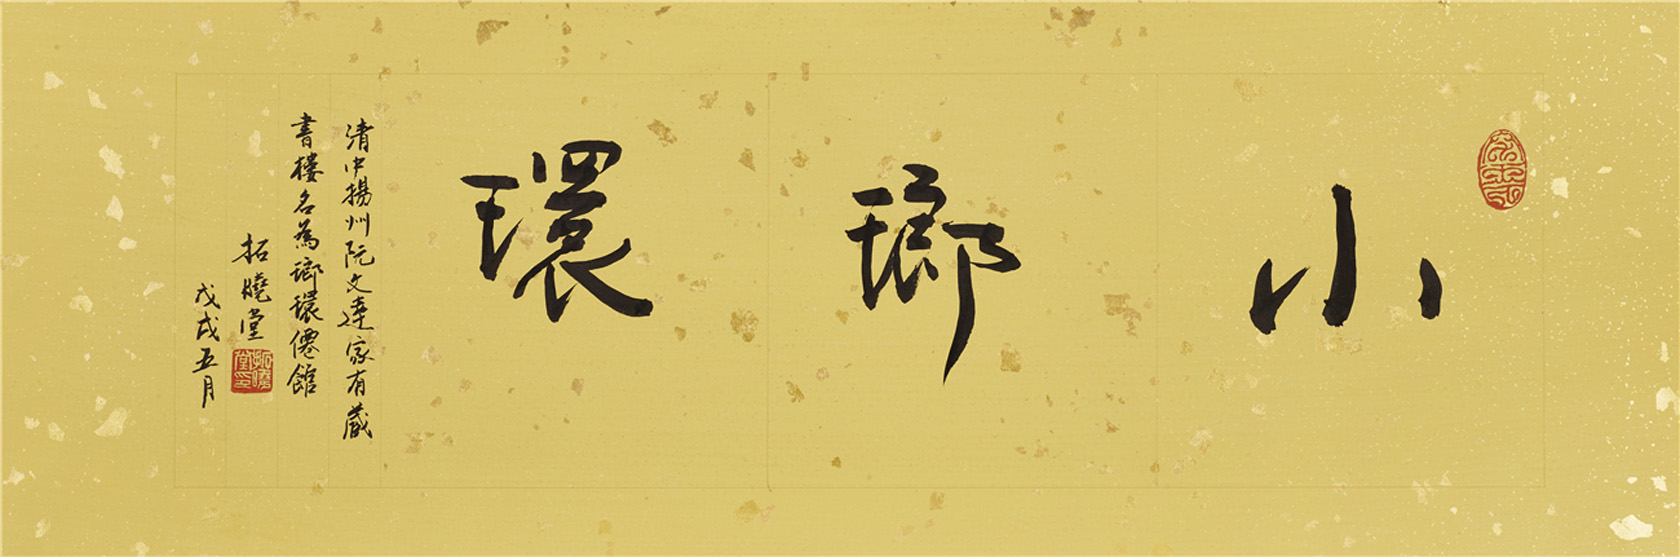 小瑯環
清中揚州阮文達家有藏
書樓名為瑯環僊館
拓曉堂
戊戌五月